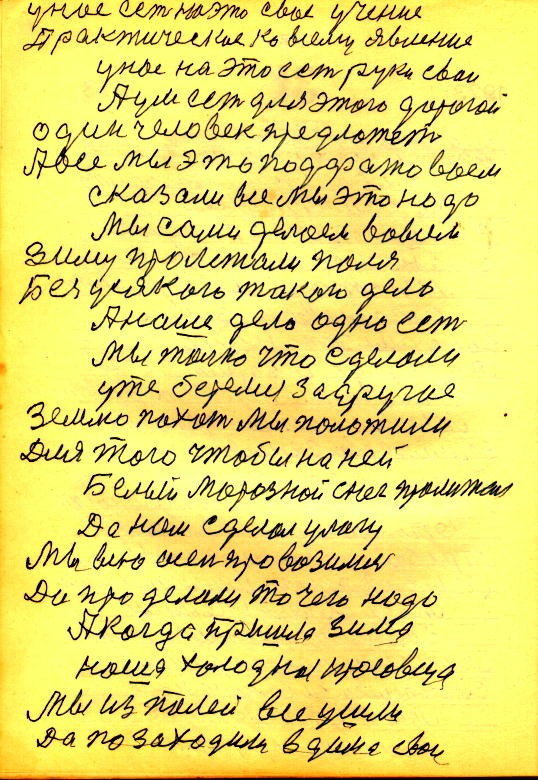 уное сст на это свое учение
Практическое ко всему явление
уное на это сст руки свои
А ум сст для этого дорогой
один человек предложет
А все мы это подхватовоем
сказали все мы это надо
Мы сами делоем во всем
Зиму пролежали поля
Без усякого такого дело
А наше дело одно сст
Мы толко что сделали
уже беремся за другое
Землю похот мы положили
Для того чтобы на ней
Белый морозной снег пролижал
Да нам сделол улогу
Мы всю
Да про делали то чего надо
А когда пришла зима
наша холодныя
Мы из полей все ушли
Да позаходили в дома свои